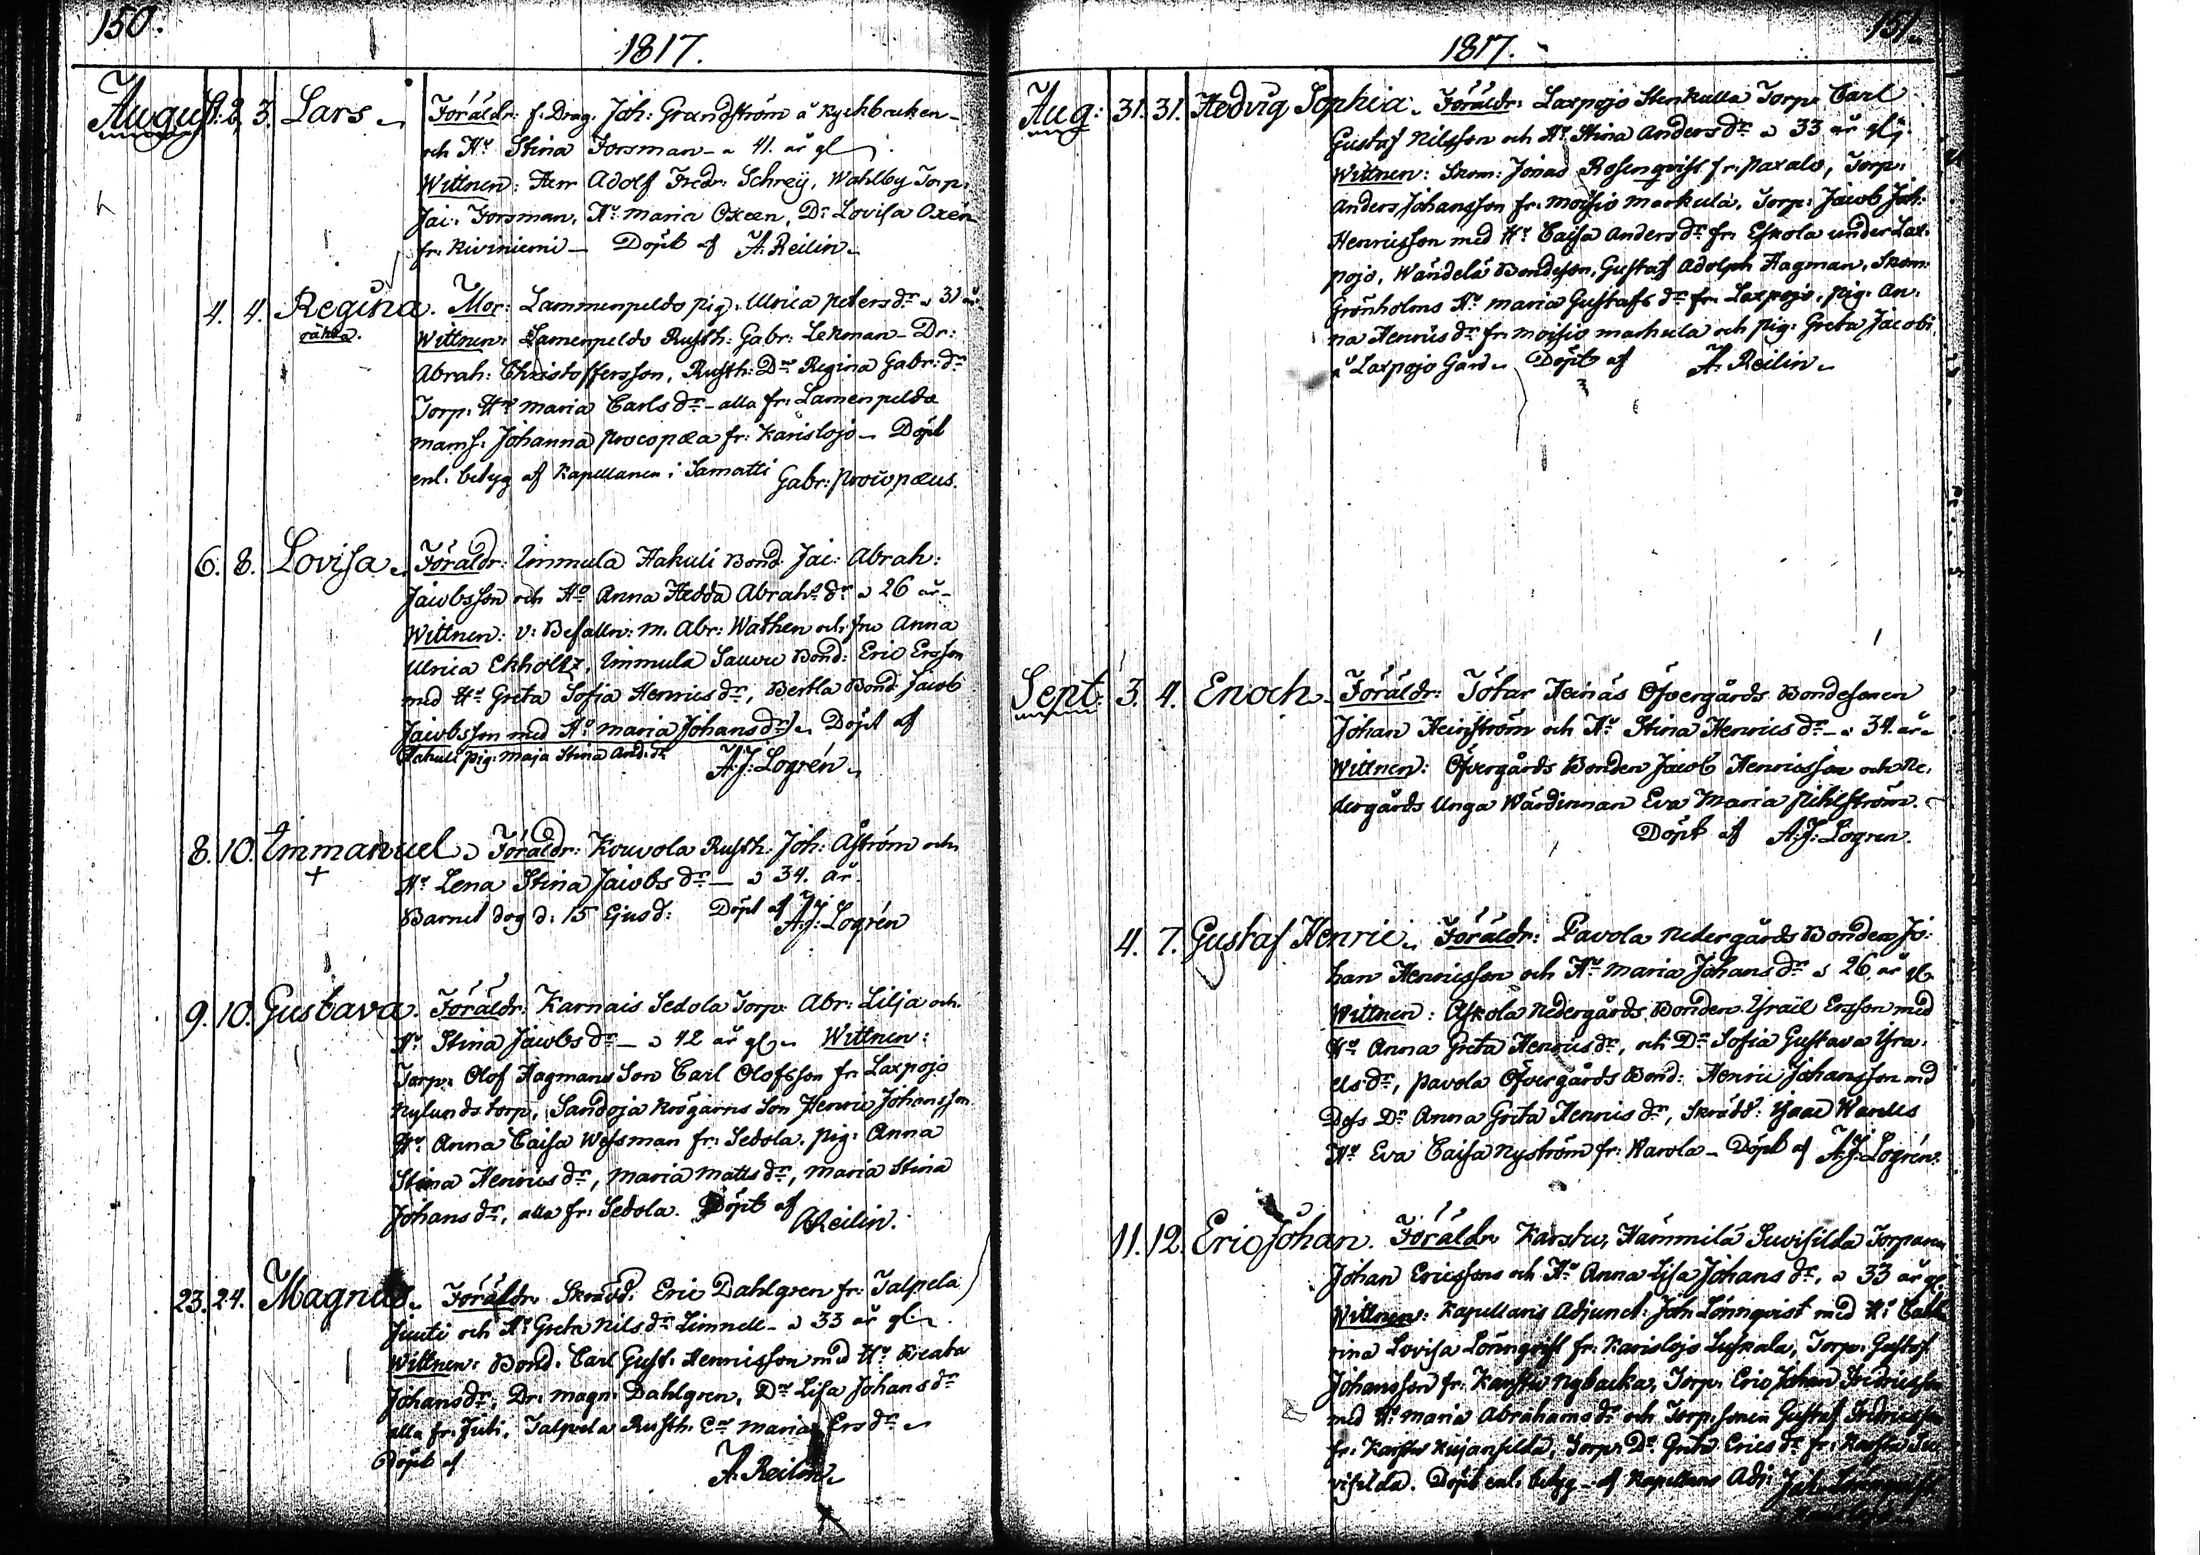 150.
1817.
August. 2. 3. Lars Föräldr: f. Drag. Joh: Grandström å Kyrkbacken
och H: Stina Forsman a 41. år gl.
Wittnen: Herr Adolf Fredr: Schreij, Wahlby Torp:
Jac: Forsman, H: Maria Oxeen, Dr Lovisa Oxén
fr: Kiviniemi Döpt af A. Reilin
4. 4. Regina. Mor: Lammenpeldo pig: Ulrica petersdr a 31 år
oäkta. Wittnen: Lamenpeldo Rusth: Gabr: Lekman Dr:
Abrah: Christoffersson, Rusth: Dr Regina Gabr: dr
Torp: H: Maria Carlsdr alla fr: Lamenpeldo
mams. Johanna procopæa fr: Karislojo Döpt
enl: betyg af Kapellanen i Samatti Gabr: procopæus.
6. 8. Lovisa Föräldr: Immula Hakuli Bond Jac: Abrah:
Jacobsson och H: Anna Hedda Abrah: dr a 26 år
Wittnen: v: Befalln: m. Abr: Wathen och fru Anna
Ulrica Ekholtz, Immula Bond: Eric Ersson
med H: Greta Sofia Henricsdr, Bertla Bond Jacob
Jacobsson med H: Maria Johansdr Döpt af
Hakuli pig: Maja Stina And: dr A. J: Logrén
8. 10. Immanuel Föräldr: Kouvola Rusth: Joh: Åström och
+ H: Lena Stina Jacobsdr a 34. år.
Barnet dog d: 15 Ejusd: Döpt af A. J: Logrén
9. 10. Gustava. Föräldr: Karnais Sedola Torp: Abr: Lilja och
H: Stina Jacobsdr a 42 år gl Wittnen:
Torp: Olof Hagmans Son Carl Olofsson fr: Laxpojo
Nylunds torp, Sandoja Krögarns Son Henric Johansson
H: Anna Caisa Wessman fr: Sedola. pig: Anna
Stina Henricsdr, Maria Mattsdr, Maria Stina
Johansdr, alla fr: Sedola. Döpt af A Reilin.
23. 24. Magnus. Föräldr: Skrädd: Eric Dahlgren fr: Talpela
Juuti och H: Greta Nilsdr Limnell a 33 år gl.
Wittnen: Bond: Carl Gust: Henricsson med H: Beata
Johansdr, Dr: Magn: Dahlgren, Dr Lisa Johansdr
alla fr: Juti, Talpela Rusth: Maria Ersdr
Döpt af A. Reilin
151.
1817.
Aug: 31. 31. Hedvig Sophia. Föräldr: Laxpojo Stenkulla Torp: Carl
Gustaf Nilsson och H: Stina Andersdr a 33 år gl.
Wittnen: Skom: Jonas Rosenqvist fr: paxalo, Torp:
Anders Johansson fr: Moisio Markula, Torp: Jacob Joh:
Henricsson med H: Caisa Andersdr fr: Eskola under Lax:
pojo, Wändelä Bondeson, Gustaf Adolph Hagman, Skom:
Grönholms H: Maria Gustafsdr fr: Laxpojo, pig: An:
na Henricsdr fr: Moisio Machula och pig: Greta Jacobi
å Laxpojo Gård Döpt af A. Reilin
Sept: 3. 4. Enoch. Föräldr: Tötar Heinäs Öfvergårds Bondesonen
Johan Heinström och H: Stina Henricsdr a 34. år
Wittnen: Öfvergårds Bonden Jacob Henricsson och Ne:
dergårds Unga Wärdinnan Eva Maria pihlström.
Döpt af A. J: Logren.
4. 7. Gustaf Henric. Föräldr: Pavola Nedergårds Bonden Jo:
han Henricsson och H: Maria Johansdr a 26 år gl
Wittnen: Askola Nedergårds Bonden Israël Ersson med
H: Anna Greta Henricsdr, och Dr Sofia Gustava Isra:
elsdr, pavola Öfvergårds Bond: Henric Johansson md
Dess Dr Anna Greta Henricsdr, Skrädd: Isaac
H: Eva Caisa Nyström fr: Karola Döpt af A. J: Logrén.
11. 12. Eric Johan. Föräldr: Karstu, Hämmilä Suvisilda Torparen
Johan Ericsson och H: Anna Lisa Johansdr, a 33 år gl
Wittnen: Kapellans Adjunct: Joh: Lönnqvist med H: Catha
rina Lovisa Lönnqvist fr: Karislojo Torp: Gustaf
Johansson fr: Karstu Nybacka, Torp: Eric Johan Fredricsson
med H: Maria Abrahamsdr och Torp: sonen Gustaf Fredricsson
fr: Karstu Kujansilda, Torp: Dr Greta Ericsdr fr: Karstu Su
visilda. Döpt enl: betyg af Kapellans Adj: Joh: Lönnqvist